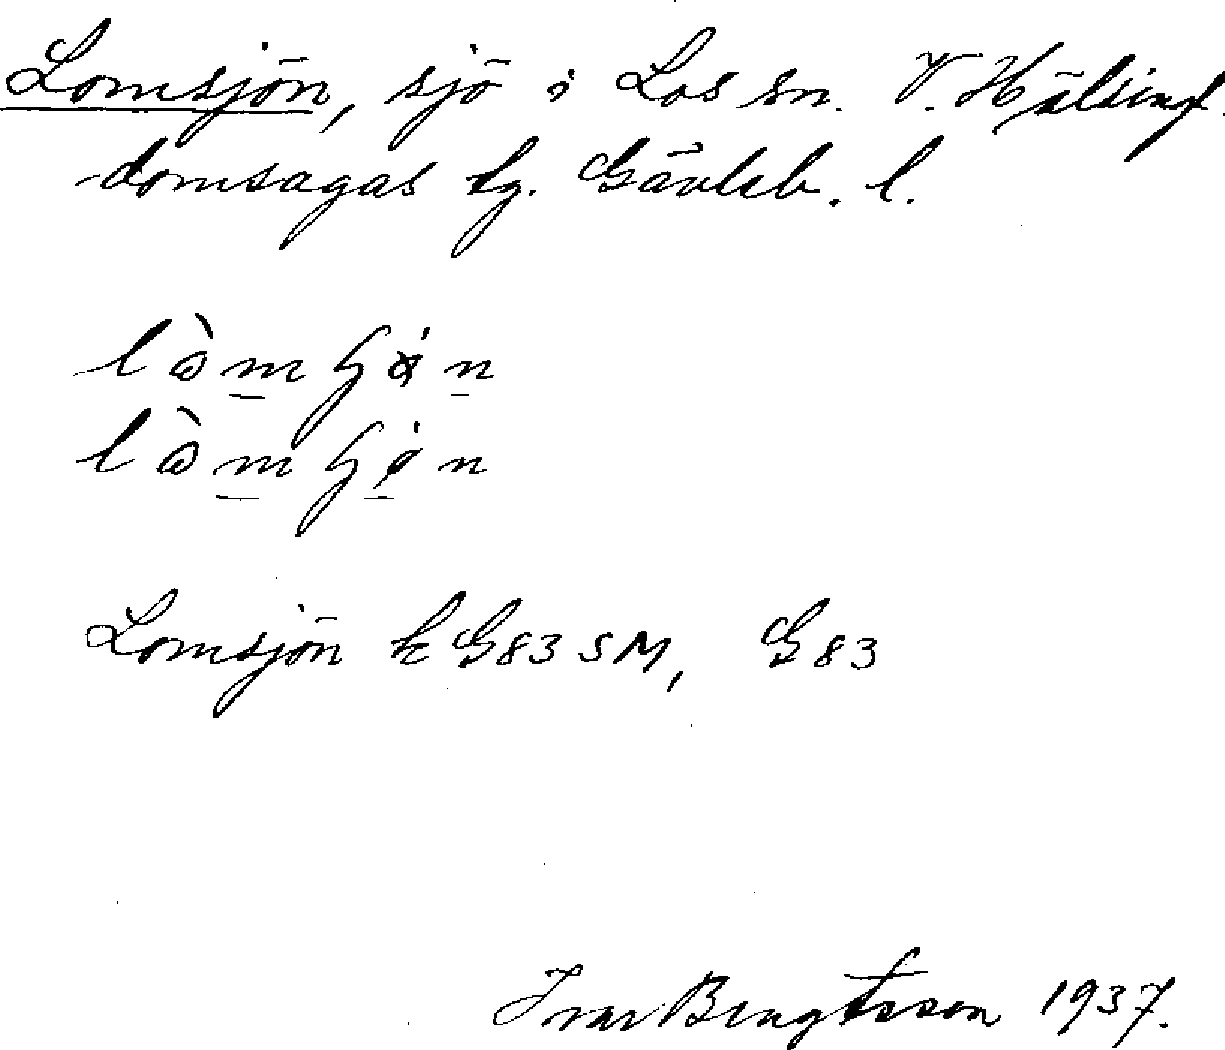 Lomsjön, sjö i Los sn. V. Hälsingl.
domsagas tg. Gävleb. l.
Lomsjön k G83 SM, G83
Ivar Bengtsson 1937.